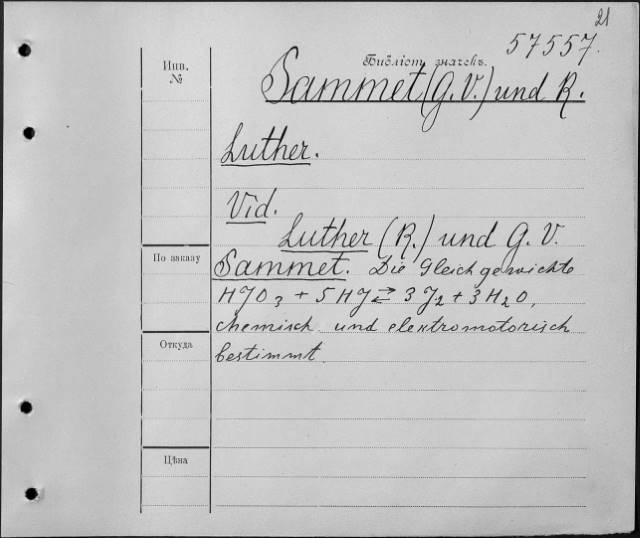 21
57557.
Инв.
№
Библіот. значекъ.
Sammet (G. V.) und R.
Luther.
Vid.
Luther (R.) und G. V.
По заказу
Sammet. Die Gleichgewichte
HJO3 + 5 HJ ⇄ 3 J2 + 3 H2O,
chemisch und elektromotorisch
Откуда
bestimmt.
Цѣна